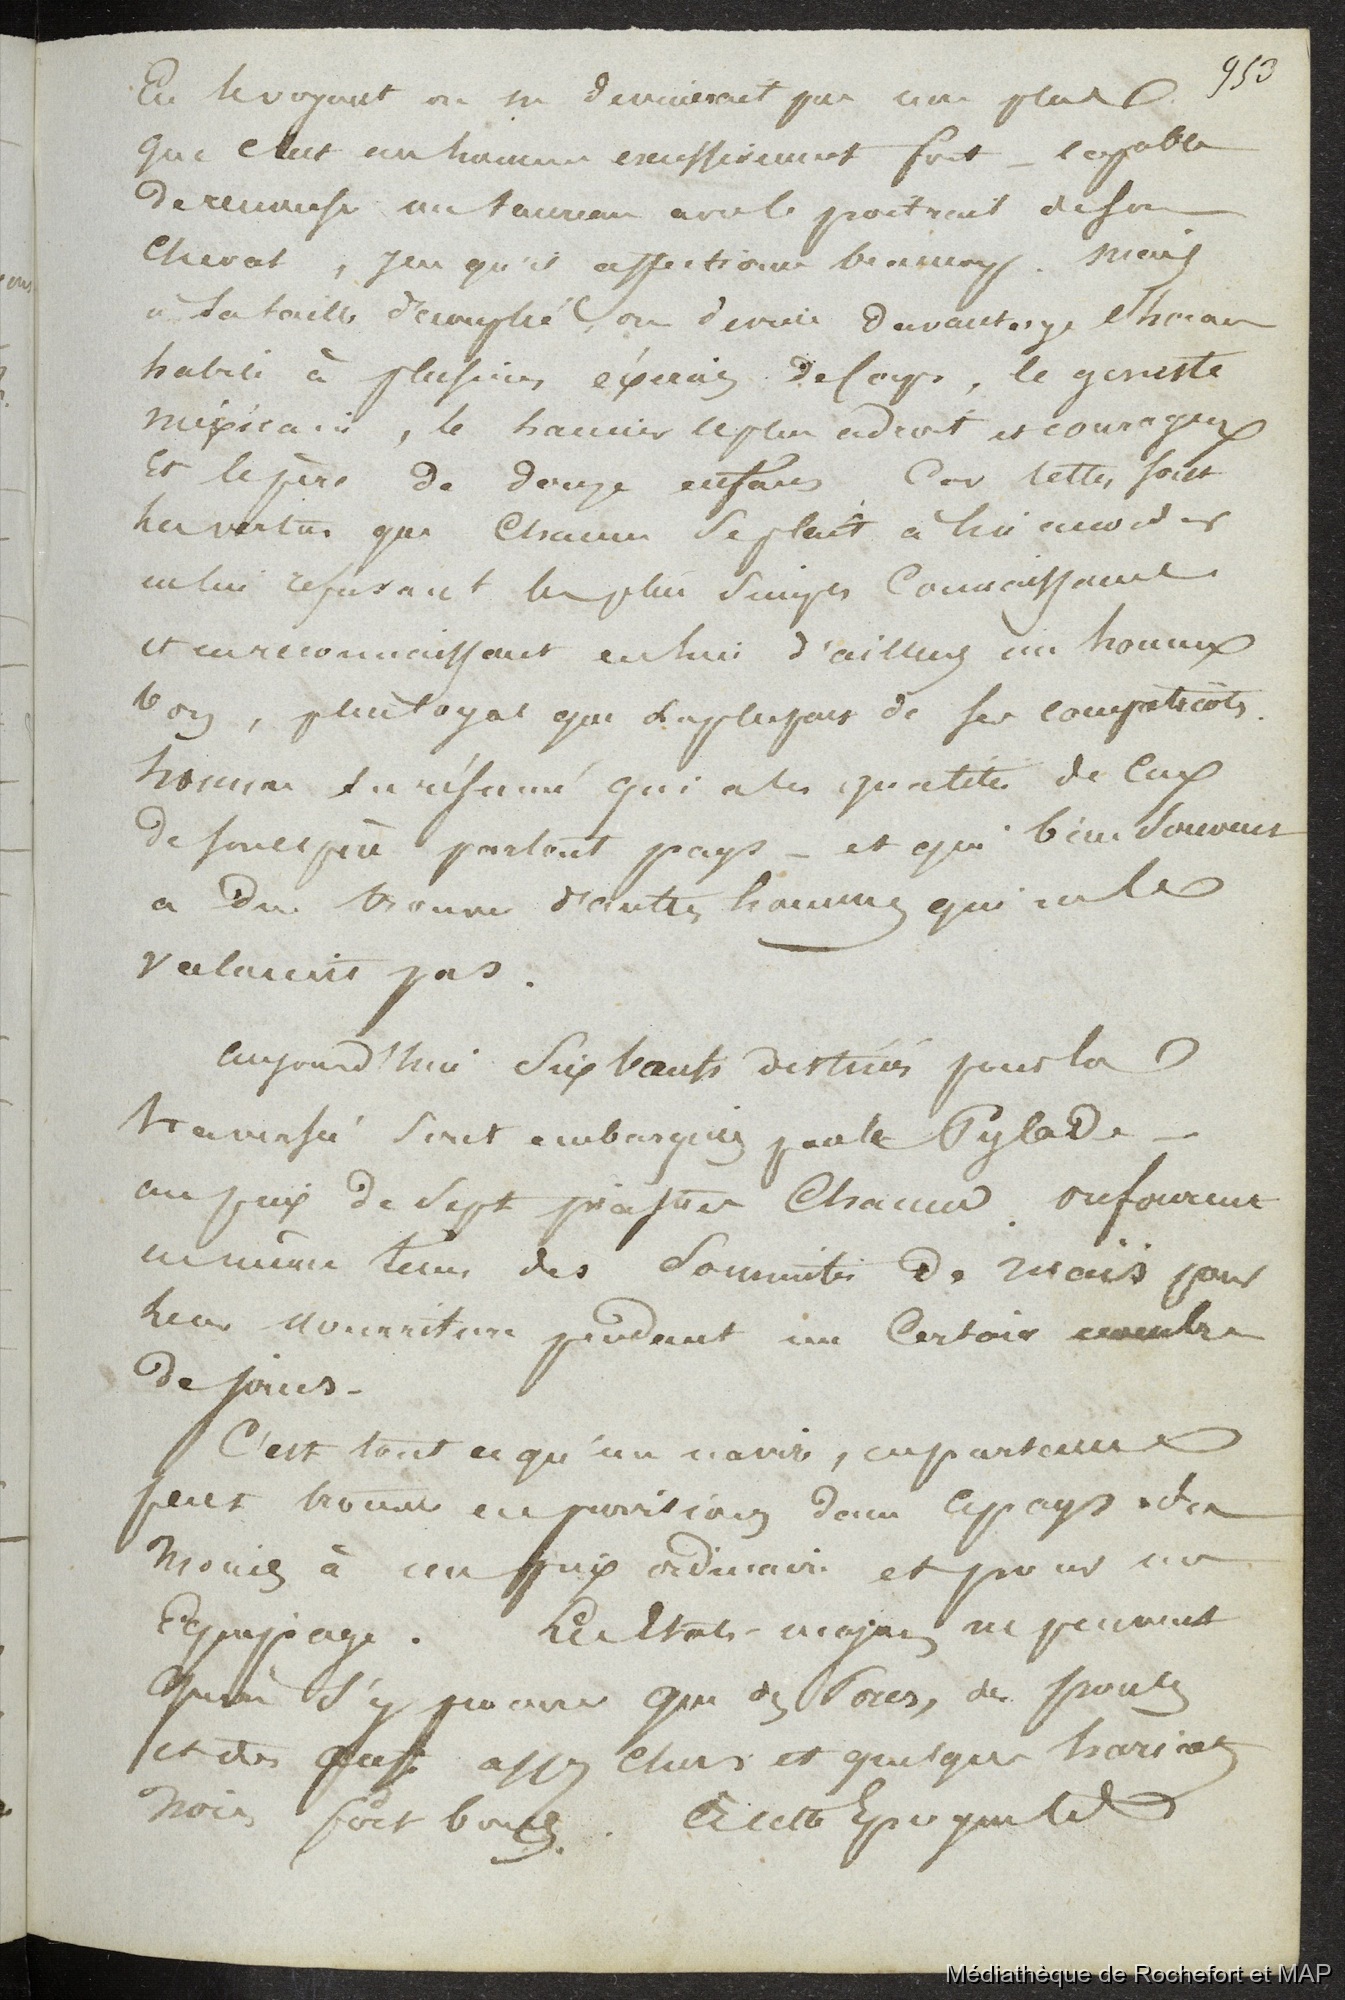 953
En le voyant on ne devinerait pas non plus
que c'est un homme excessivement fort _ capable
de renverser un taureau avec le poitrail de son
cheval, jeu qu'il affectionne beaucoup. mais
à sa taille on devine davantage l'homme
habile à plusieurs exercices de corps, le
méxicain, le homme le plus adroit et courageux
et le père de douze enfans Car telles sont
les vertus que chacun se plait à lui accorder
en lui refusant les plus simples connaissances
et en reconnaissant en lui d'ailleurs un homme
bon, plus loyal que la plupart de ses compatriotes.
homme en résumé qui a les qualités de ceux
de son espèce partout pays _ et qui bien souvent
a du trouver d'autres hommes qui ne le
valaient pas.
aujourd'hui six bœufs destinés pour la
traversée sont embarqués par le Pylade _
au prix de sept piastres chacun. on fournit
en même tems des sommités de maïs pour
leur nourriture pendant un certain nombre
de jours _
C'est tout ce qu'un navire, en partance
peut trouver en provisions dans ce pays des
moins à un prix ordinaire et pour un
Equipage. Les Etats-majors ne peuvent
s'y procurer que des porcs, des poules
et des œufs assez chers et quelques haricots
noirs fort bons. à cette Epoque le